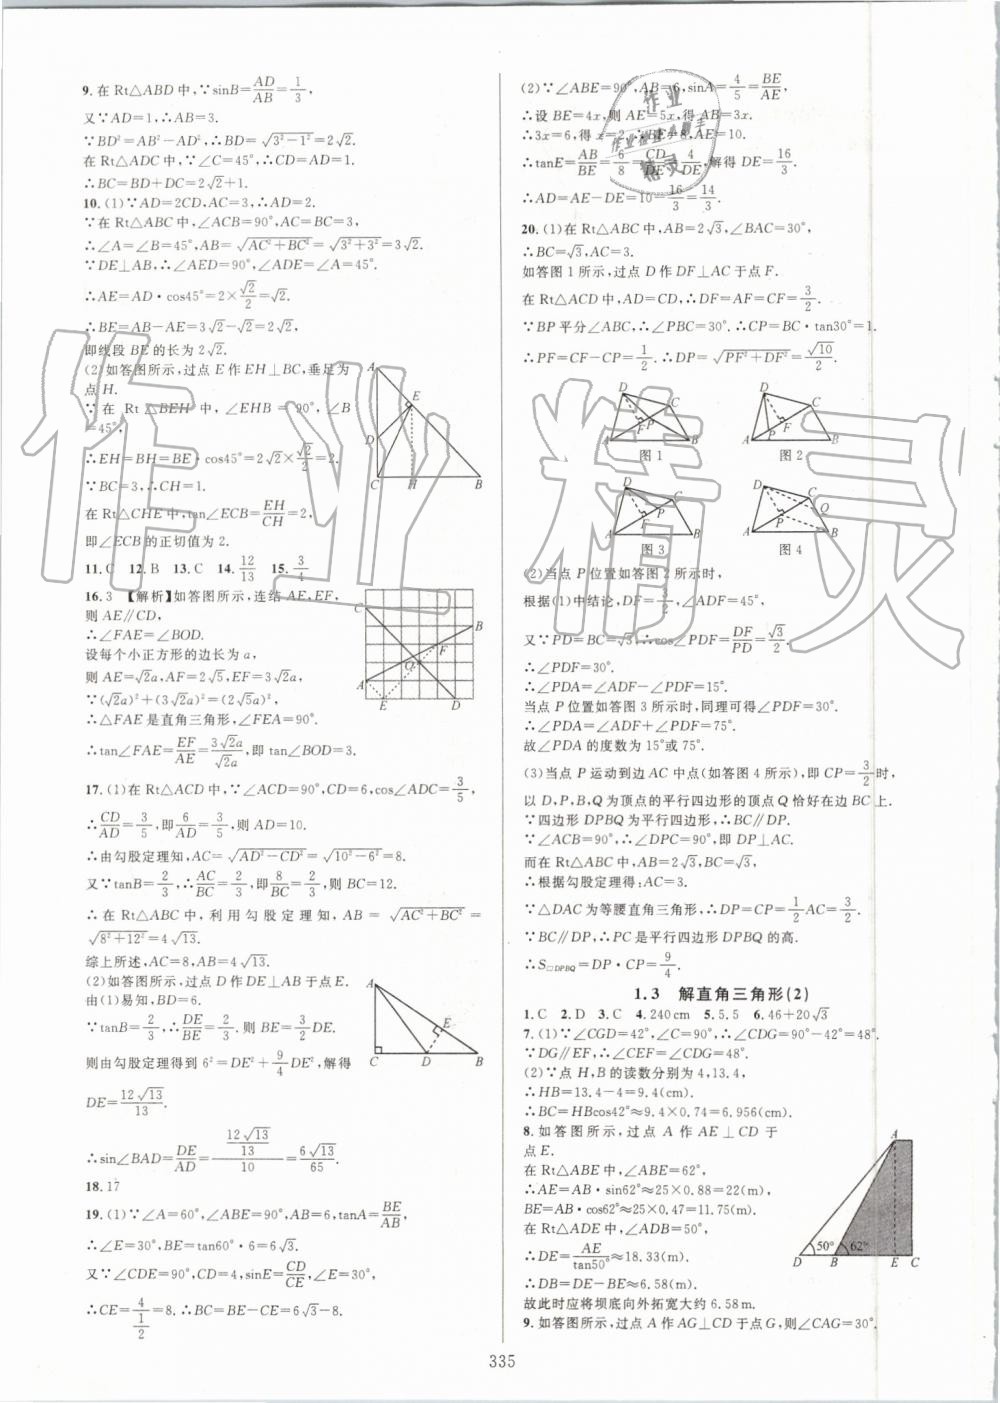 9.在Rt△ABD中,∵sinB=AD/AB=1/3,
又∵AD=1,∴AB=3.
∵BD²=AB²-AD²,∴BD=√(3²-1²)=2√2.
在Rt△ADC中,∵∠C=45°,∴CD=AD=1.
∴BC=BD+DC=2√2+1.
10.(1)∵AD=2CD,AC=3,∴AD=2.
∵在Rt△ABC中,∠ACB=90°,AC=BC=3,
∴∠A=∠B=45°,AB=√(AC²+BC²)=√(3²+3²)=3√2.
∵DE⊥AB,∴∠AED=90°,∠ADE=∠A=45°.
∴AE=AD·cos45°=2×√2/2=√2.
∴BE=AB-AE=3√2-√2=2√2,
即线段BE的长为2√2.
(2)如答图所示,过点E作EH⊥BC,垂足为
点H.
∵在Rt△BEH中,∠EHB=90°,∠B
=45°,
∴EH=BH=BE·cos45°=2√2×√2/2=2.
∵BC=3,∴CH=1.
在Rt△CHE中,tan∠ECB=EH/CH=2,
即∠ECB的正切值为2.
A
E
D
C H B
11.C 12.B 13.C 14.12/13 15.3/4
16.3 【解析】如答图所示,连结AE,EF,
则AE∥CD,
∴∠FAE=∠BOD.
设每个小正方形的边长为a,
则AE=√2a,AF=2√5,EF=3√2a,
∵(√2a)²+(3√2a)²=(2√5a)²,
∴△FAE是直角三角形,∠FEA=90°.
∴tan∠FAE=EF/AE=3√2a/√2a,即tan∠BOD=3.
C
B
F
O
A
E D
17.(1)在Rt△ACD中,∵∠ACD=90°,CD=6,cos∠ADC=3/5,
∴CD/AD=3/5,即6/AD=3/5,则AD=10.
∴由勾股定理知,AC=√(AD²-CD²)=√(10²-6²)=8.
又∵tanB=2/3,∴AC/BC=2/3,即8/BC=2/3,则BC=12.
∴在Rt△ABC中,利用勾股定理知,AB=√(AC²+BC²)=
√(8²+12²)=4√13.
综上所述,AC=8,AB=4√13.
(2)如答图所示,过点D作DE⊥AB于点E.
由(1)易知,BD=6.
∵tanB=2/3,∴DE/BE=2/3.则BE=3/2DE.
则由勾股定理得到6²=DE²+9/4DE²,解得
DE=12√13/13.
∴sin∠BAD=DE/AD=(12√13/13)/10=6√13/65.
A
E
C D B
18.17
19.(1)∵∠A=60°,∠ABE=90°,AB=6,tanA=BE/AB,
∴∠E=30°,BE=tan60°·6=6√3.
又∵∠CDE=90°,CD=4,sinE=CD/CE,∠E=30°,
∴CE=4/(1/2)=8.∴BC=BE-CE=6√3-8.
(2)∵∠ABE=90°,AB=6,sinA=4/5=BE/AE,
∴设BE=4x,则AE=5x,得AB=3x.
∴3x=6,得x=2,∴BE=8,AE=10.
∴tanE=AB/BE=6/8=CD/DE=4/DE,解得DE=16/3.
∴AD=AE-DE=10-16/3=14/3.
20.(1)在Rt△ABC中,AB=2√3,∠BAC=30°,
∴BC=√3,AC=3.
如答图1所示,过点D作DF⊥AC于点F.
在Rt△ACD中,AD=CD,∴DF=AF=CF=3/2.
∵BP平分∠ABC,∴∠PBC=30°.∴CP=BC·tan30°=1.
∴PF=CF-CP=1/2.∴DP=√(PF²+DF²)=√10/2.
D C F P A B
图1
D C F P A B
图2
D C P F A B
图3
D C Q P A B
图4
(2)当点P位置如答图2所示时,
根据(1)中结论,DF=3/2,∠ADF=45°,
又∵PD=BC=√3,∴cos∠PDF=DF/PD=√3/2.
∴∠PDF=30°.
∴∠PDA=∠ADF-∠PDF=15°.
当点P位置如答图3所示时,同理可得∠PDF=30°.
∴∠PDA=∠ADF+∠PDF=75°.
故∠PDA的度数为15°或75°.
(3)当点P运动到边AC中点(如答图4所示),即CP=3/2时,
以D,P,B,Q为顶点的平行四边形的顶点Q恰好在边BC上.
∵四边形DPBQ为平行四边形,∴BC∥DP.
∵∠ACB=90°,∴∠DPC=90°,即DP⊥AC.
而在Rt△ABC中,AB=2√3,BC=√3,
∴根据勾股定理得:AC=3.
∵△DAC为等腰直角三角形,∴DP=CP=1/2AC=3/2.
∵BC∥DP,∴PC是平行四边形DPBQ的高.
∴S□DPBQ=DP·CP=9/4.
1.3 解直角三角形(2)
1.C 2.D 3.C 4.240cm 5.5.5 6.46+20√3
7.(1)∵∠CGD=42°,∠C=90°,∴∠CDG=90°-42°=48°.
∵DG∥EF,∴∠CEF=∠CDG=48°.
(2)∵点H,B的读数分别为4,13.4,
∴HB=13.4-4=9.4(cm).
∴BC=HBcos42°≈9.4×0.74=6.956(cm).
8.如答图所示,过点A作AE⊥CD于
点E.
在Rt△ABE中,∠ABE=62°,
∴AE=AB·sin62°≈25×0.88=22(m),
BE=AB·cos62°≈25×0.47=11.75(m).
在Rt△ADE中,∠ADB=50°,
∴DE=AE/tan50°≈18.33(m).
∴DB=DE-BE≈6.58(m).
故此时应将坝底向外拓宽大约6.58m.
A
50° 62°
D B E C
9.如答图所示,过点A作AG⊥CD于点G,则∠CAG=30°.
335
作业精灵
作业
作业检查小助手
精灵